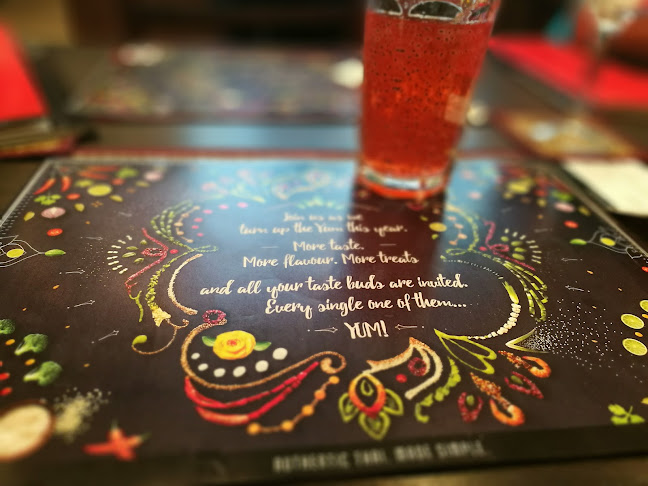 Join us as we
turn up the Yum this year.
More taste.
More flavour. More treats
and all your taste buds are invited.
Every single one of them...
YUM!
AUTHENTIC THAI. MADE SIMPLE.